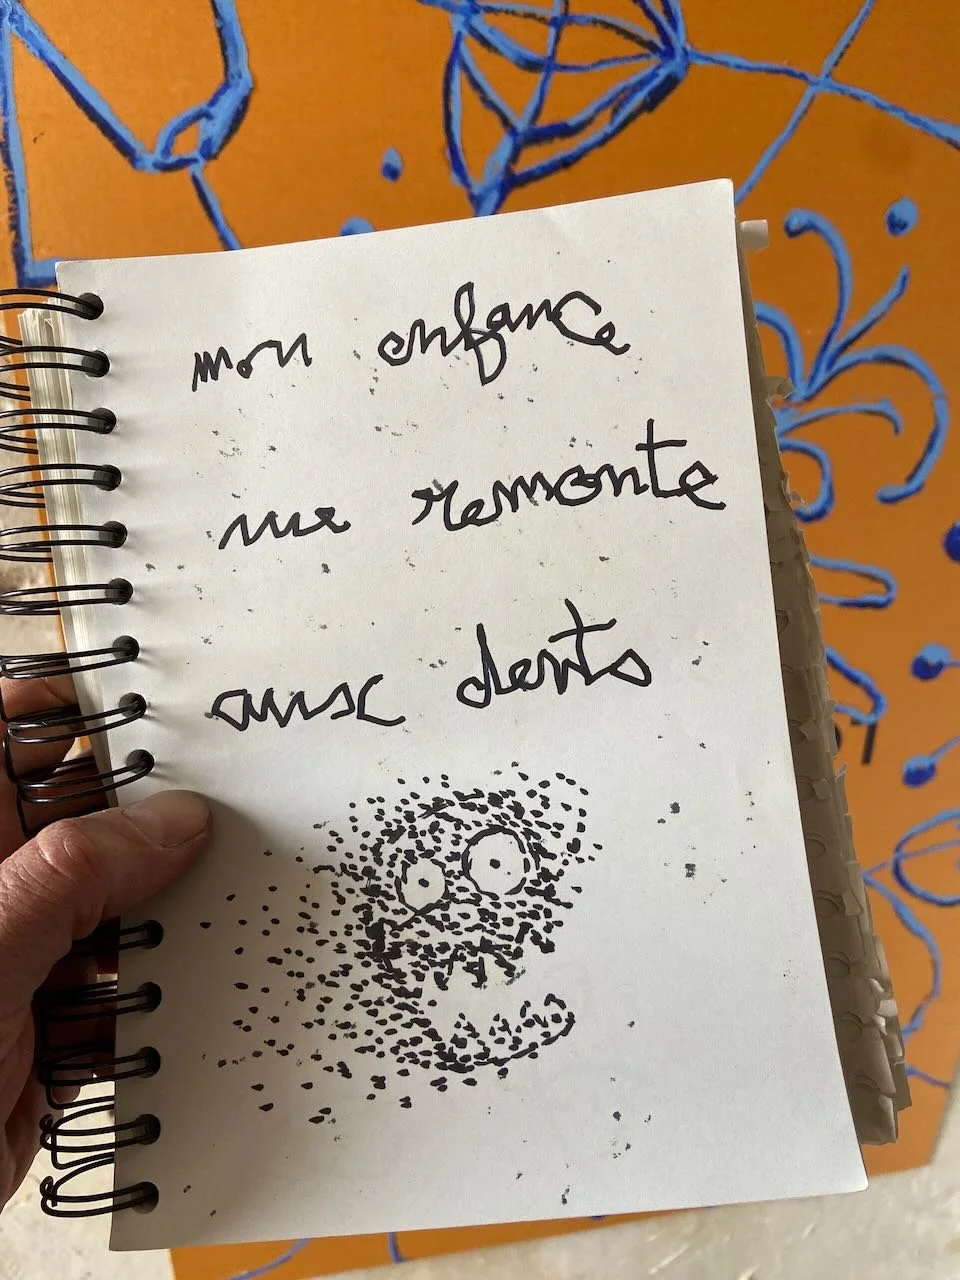 mon enfance
me remonte
aux dents